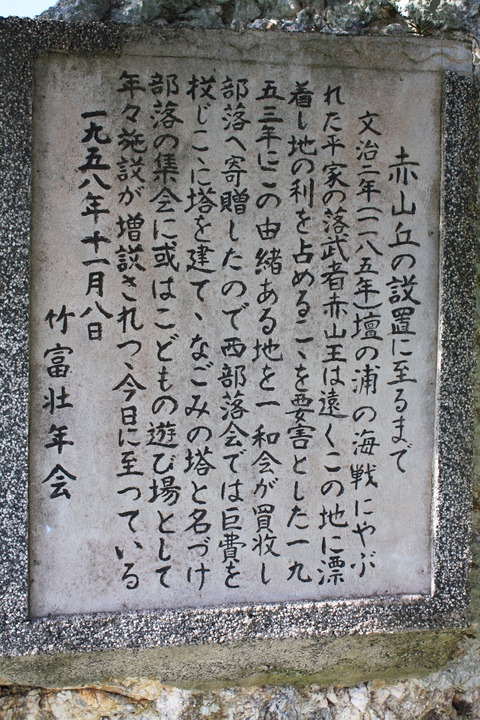 赤山丘の設置に至るまで
文治二年(一一八五年)壇の浦の海戦にやぶ
れた平家の落武者赤山王は遠くこの地に漂
着し地の利を占めるこゝを要害とした一九
五三年にこの由緒ある地を一和会が買收し
部落へ寄贈したので西部落会では巨費を
投じこゝに塔を建て、なごみの塔と名づけ
部落の集会に或はこどもの遊び場として
年々施設が増設されつゝ今日に至つている
一九五八年十一月八日
竹富壮年会